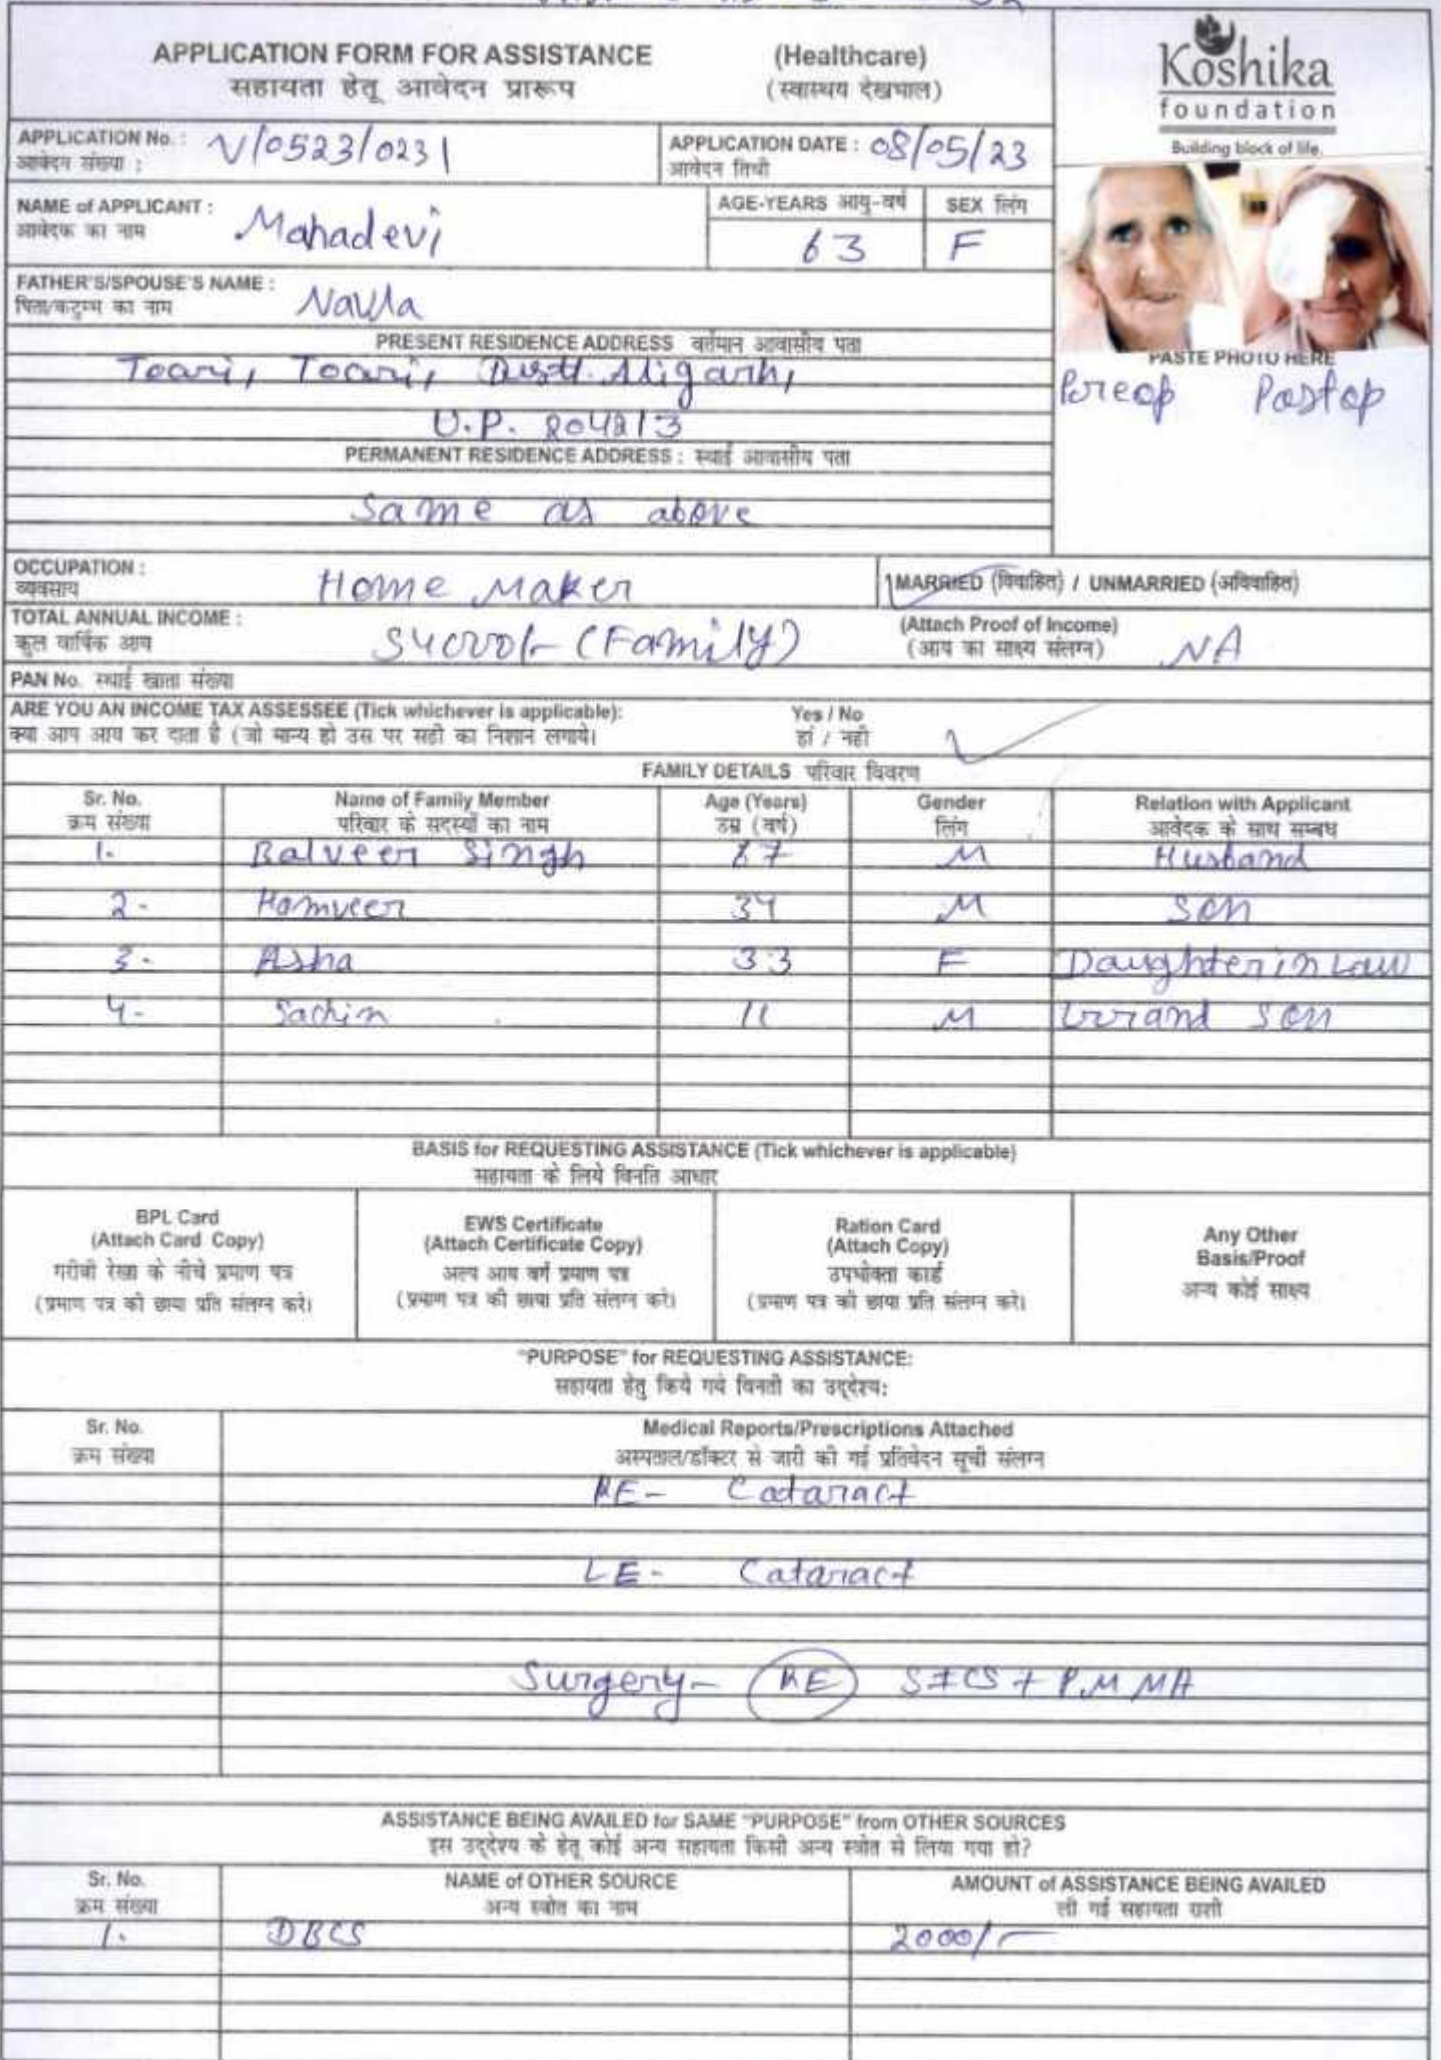 APPLICATION FORM FOR ASSISTANCE (Healthcare)
सहायता हेतू आवेदन प्रारूप (स्वास्थय देखभाल)
Koshika
foundation
Building block of life.
APPLICATION No. : V/0523/0231
आवेदन संख्या :
APPLICATION DATE : 08/05/23
आवेदन तिथी
NAME of APPLICANT : Mahadevi
आवेदक का नाम
AGE-YEARS आयु-वर्ष SEX लिंग
63 F
FATHER'S/SPOUSE'S NAME :
पिता/कटुम्भ का नाम
PRESENT RESIDENCE ADDRESS वर्तमान आवासीय पता
Distt. Aligarh,
U.P.
PASTE PHOTO HERE
Preop Postop
PERMANENT RESIDENCE ADDRESS : स्थाई आवासीय पता
Same as above
OCCUPATION : Home Maker
व्यवसाय
MARRIED (विवाहित) / UNMARRIED (अविवाहित)
TOTAL ANNUAL INCOME : (Family)
कुल वार्षिक आय
(Attach Proof of Income) NA
(आय का साक्ष्य संलग्न)
PAN No. स्थाई खाता संख्या
ARE YOU AN INCOME TAX ASSESSEE (Tick whichever is applicable): Yes / No
क्या आप आय कर दाता है (जो मान्य हो उस पर सही का निशान लगाये। हां / नही
FAMILY DETAILS परिवार विवरण
Sr. No. Name of Family Member Age (Years) Gender Relation with Applicant
क्रम संख्या परिवार के सदस्यों का नाम उम्र (वर्ष) लिंग आवेदक के साथ सम्बध
1. Balveer Singh 67 M Husband
2- Hamveer 34 M Son
3- Asha 33 F Daughter in Law
4- Sachin 11 M Grand Son
BASIS for REQUESTING ASSISTANCE (Tick whichever is applicable)
सहायता के लिये विनति आधार
BPL Card
(Attach Card Copy)
गरीबी रेखा के नीचे प्रमाण पत्र
(प्रमाण पत्र की छाया प्रति संलग्न करे)
EWS Certificate
(Attach Certificate Copy)
अल्प आय वर्ग प्रमाण पत्र
(प्रमाण पत्र की छाया प्रति संलग्न करे)
Ration Card
(Attach Copy)
उपभोक्ता कार्ड
(प्रमाण पत्र की छाया प्रति संलग्न करे)
Any Other
Basis/Proof
अन्य कोई साक्ष्य
"PURPOSE" for REQUESTING ASSISTANCE:
सहायता हेतु किये गये विनती का उद्देश्य:
Sr. No. Medical Reports/Prescriptions Attached
क्रम संख्या अस्पताल/डॉक्टर से जारी की गई प्रतिवेदन सूची संलग्न
RE- Cataract
LE- Cataract
Surgery- RE SICS + PMMA
ASSISTANCE BEING AVAILED for SAME "PURPOSE" from OTHER SOURCES
इस उद्देश्य के हेतू कोई अन्य सहायता किसी अन्य स्त्रोत से लिया गया हो?
Sr. No. NAME of OTHER SOURCE AMOUNT of ASSISTANCE BEING AVAILED
क्रम संख्या अन्य स्त्रोत का नाम ली गई सहायता राशी
1. DBCS 2000/-